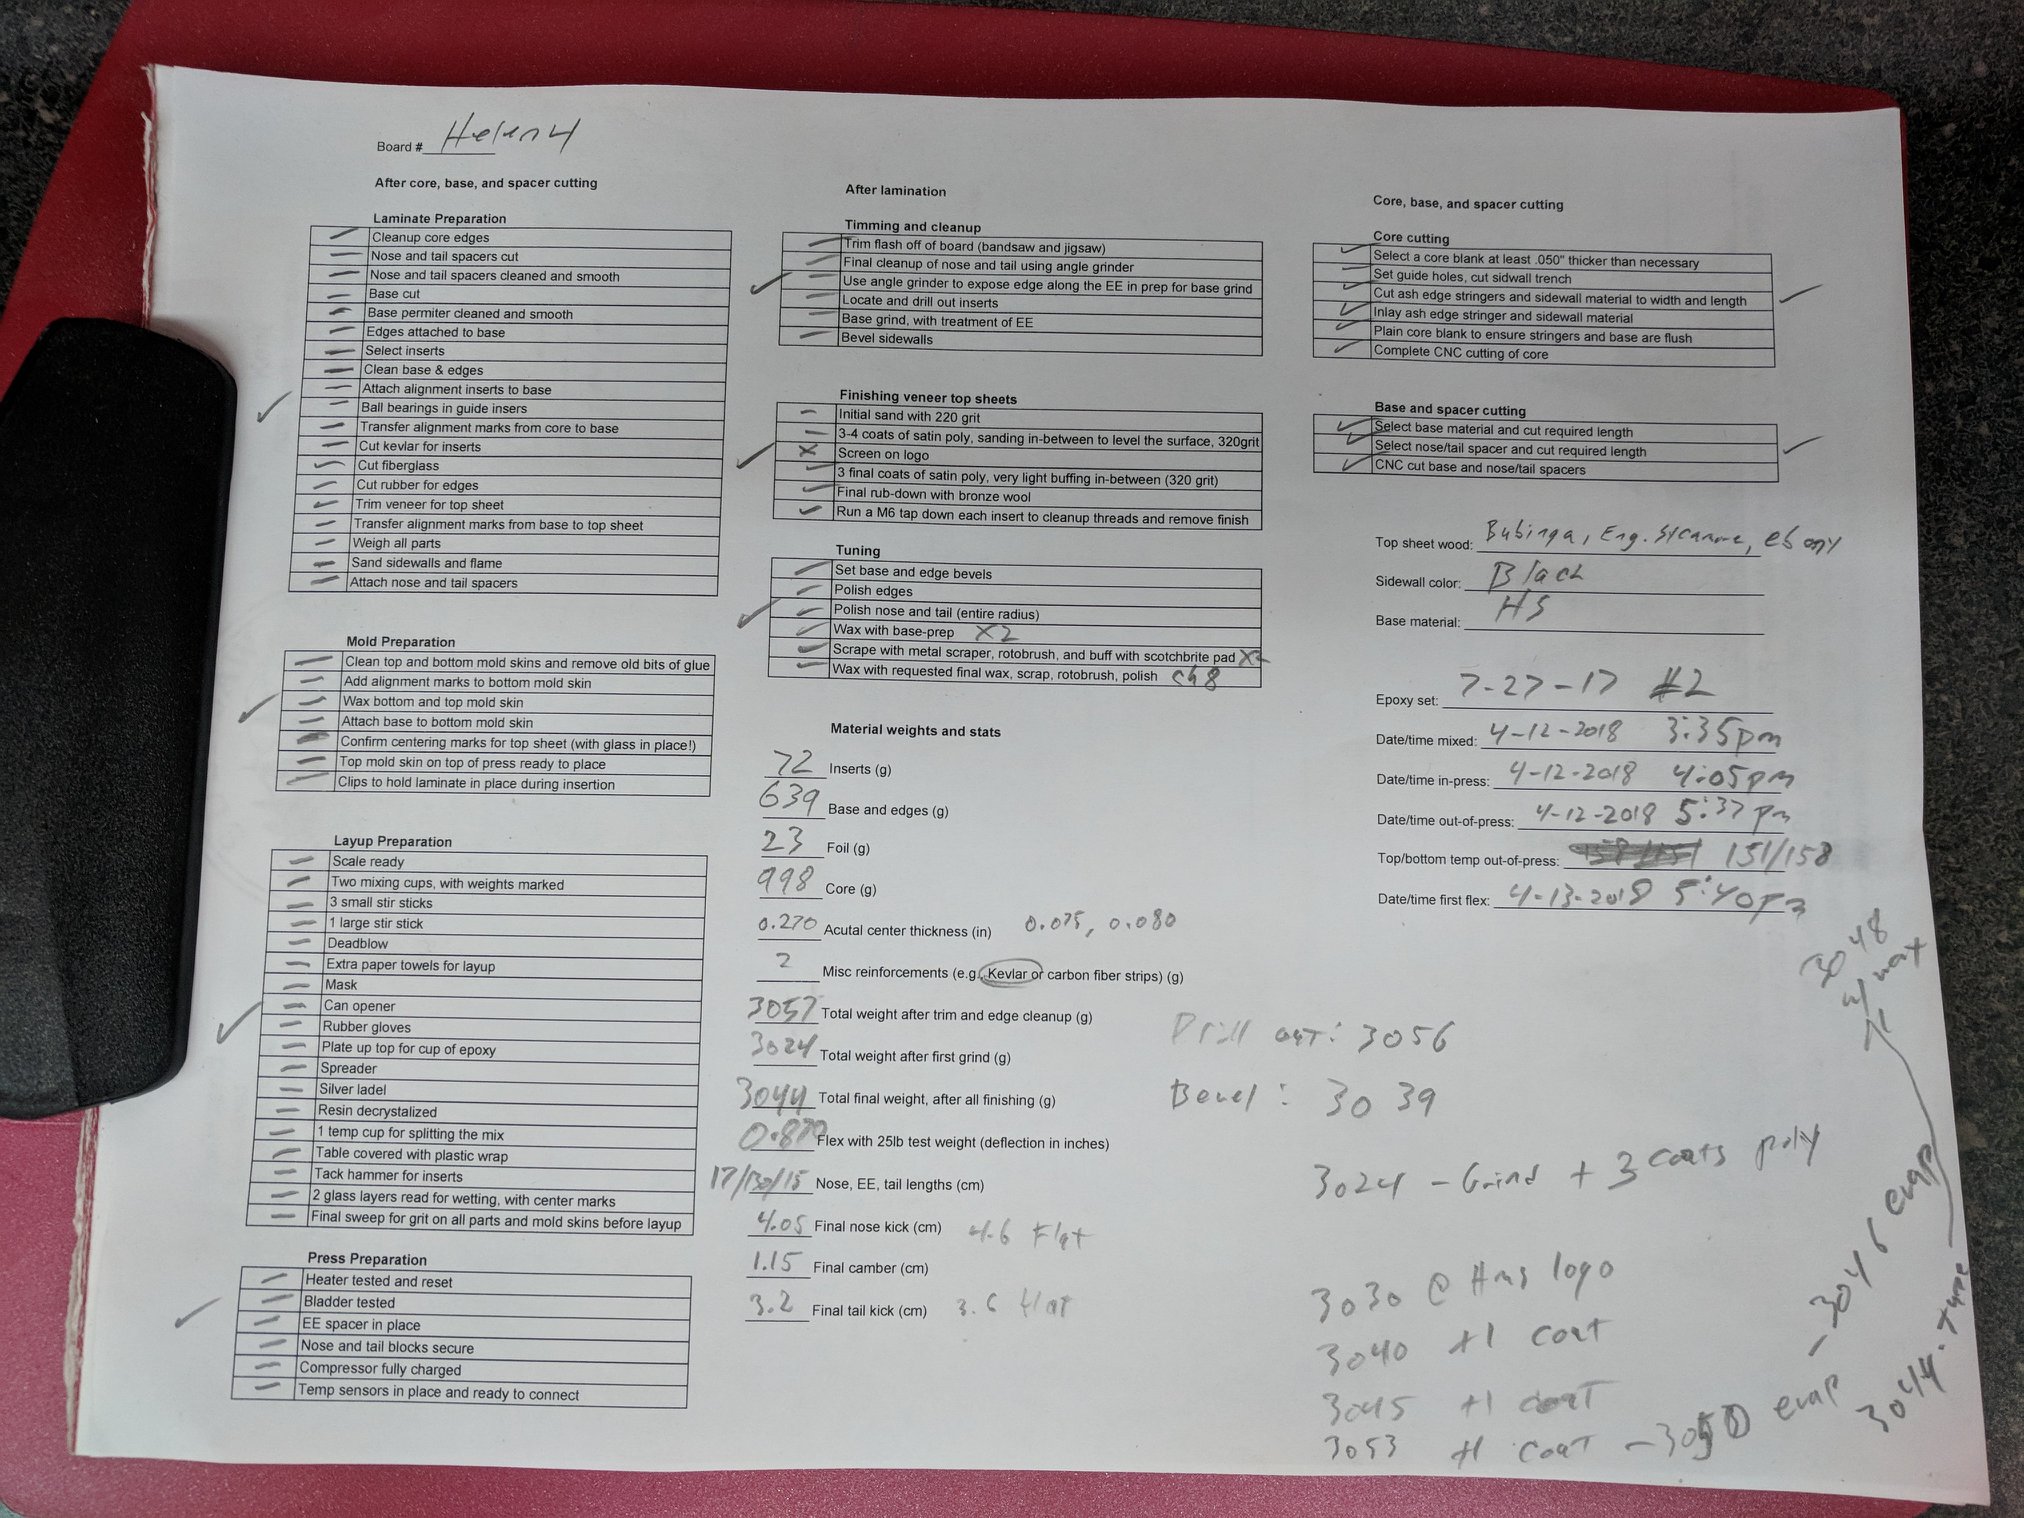 Board # Helen 4
After core, base, and spacer cutting
Laminate Preparation
Cleanup core edges
Nose and tail spacers cut
Nose and tail spacers cleaned and smooth
Base cut
Base permiter cleaned and smooth
Edges attached to base
Select inserts
Clean base & edges
Attach alignment inserts to base
Ball bearings in guide insers
Transfer alignment marks from core to base
Cut kevlar for inserts
Cut fiberglass
Cut rubber for edges
Trim veneer for top sheet
Transfer alignment marks from base to top sheet
Weigh all parts
Sand sidewalls and flame
Attach nose and tail spacers
Mold Preparation
Clean top and bottom mold skins and remove old bits of glue
Add alignment marks to bottom mold skin
Wax bottom and top mold skin
Attach base to bottom mold skin
Confirm centering marks for top sheet (with glass in place!)
Top mold skin on top of press ready to place
Clips to hold laminate in place during insertion
Layup Preparation
Scale ready
Two mixing cups, with weights marked
3 small stir sticks
1 large stir stick
Deadblow
Extra paper towels for layup
Mask
Can opener
Rubber gloves
Plate up top for cup of epoxy
Spreader
Silver ladel
Resin decrystalized
1 temp cup for splitting the mix
Table covered with plastic wrap
Tack hammer for inserts
2 glass layers read for wetting, with center marks
Final sweep for grit on all parts and mold skins before layup
Press Preparation
Heater tested and reset
Bladder tested
EE spacer in place
Nose and tail blocks secure
Compressor fully charged
Temp sensors in place and ready to connect
After lamination
Timming and cleanup
Trim flash off of board (bandsaw and jigsaw)
Final cleanup of nose and tail using angle grinder
Use angle grinder to expose edge along the EE in prep for base grind
Locate and drill out inserts
Base grind, with treatment of EE
Bevel sidewalls
Finishing veneer top sheets
Initial sand with 220 grit
3-4 coats of satin poly, sanding in-between to level the surface, 320grit
X Screen on logo
3 final coats of satin poly, very light buffing in-between (320 grit)
Final rub-down with bronze wool
Run a M6 tap down each insert to cleanup threads and remove finish
Tuning
Set base and edge bevels
Polish edges
Polish nose and tail (entire radius)
Wax with base-prep X2
Scrape with metal scraper, rotobrush, and buff with scotchbrite pad X2
Wax with requested final wax, scrap, rotobrush, polish Ch8
Material weights and stats
72 Inserts (g)
639 Base and edges (g)
23 Foil (g)
998 Core (g)
0.270 Acutal center thickness (in) 0.075, 0.080
2 Misc reinforcements (e.g. Kevlar or carbon fiber strips) (g)
3057 Total weight after trim and edge cleanup (g)
3024 Total weight after first grind (g)
3044 Total final weight, after all finishing (g)
Flex with 25lb test weight (deflection in inches)
17/130/15 Nose, EE, tail lengths (cm)
4.05 Final nose kick (cm) 4.6 Flat
1.15 Final camber (cm)
3.2 Final tail kick (cm) 3.6 flat
Core, base, and spacer cutting
Core cutting
Select a core blank at least .050" thicker than necessary
Set guide holes, cut sidwall trench
Cut ash edge stringers and sidewall material to width and length
Inlay ash edge stringer and sidewall material
Plain core blank to ensure stringers and base are flush
Complete CNC cutting of core
Base and spacer cutting
Select base material and cut required length
Select nose/tail spacer and cut required length
CNC cut base and nose/tail spacers
Top sheet wood: Bubinga, Eng. Sycamore, ebony
Sidewall color: Black
Base material: HS
Epoxy set: 7-27-17 #2
Date/time mixed: 4-12-2018 3:35pm
Date/time in-press: 4-12-2018 4:05pm
Date/time out-of-press: 4-12-2018 5:37pm
Top/bottom temp out-of-press: 151/158
Date/time first flex: 4-13-2018 5:40pm
Drill out: 3056
Bevel: 3039
3024 - Grind + 3 coats poly
3030 @ Hns logo
3040 +1 coat
3045 +1 coat
3053 +1 coat - 3050 evap - 3046 evap
3044 - Tune
3048 w/ wax